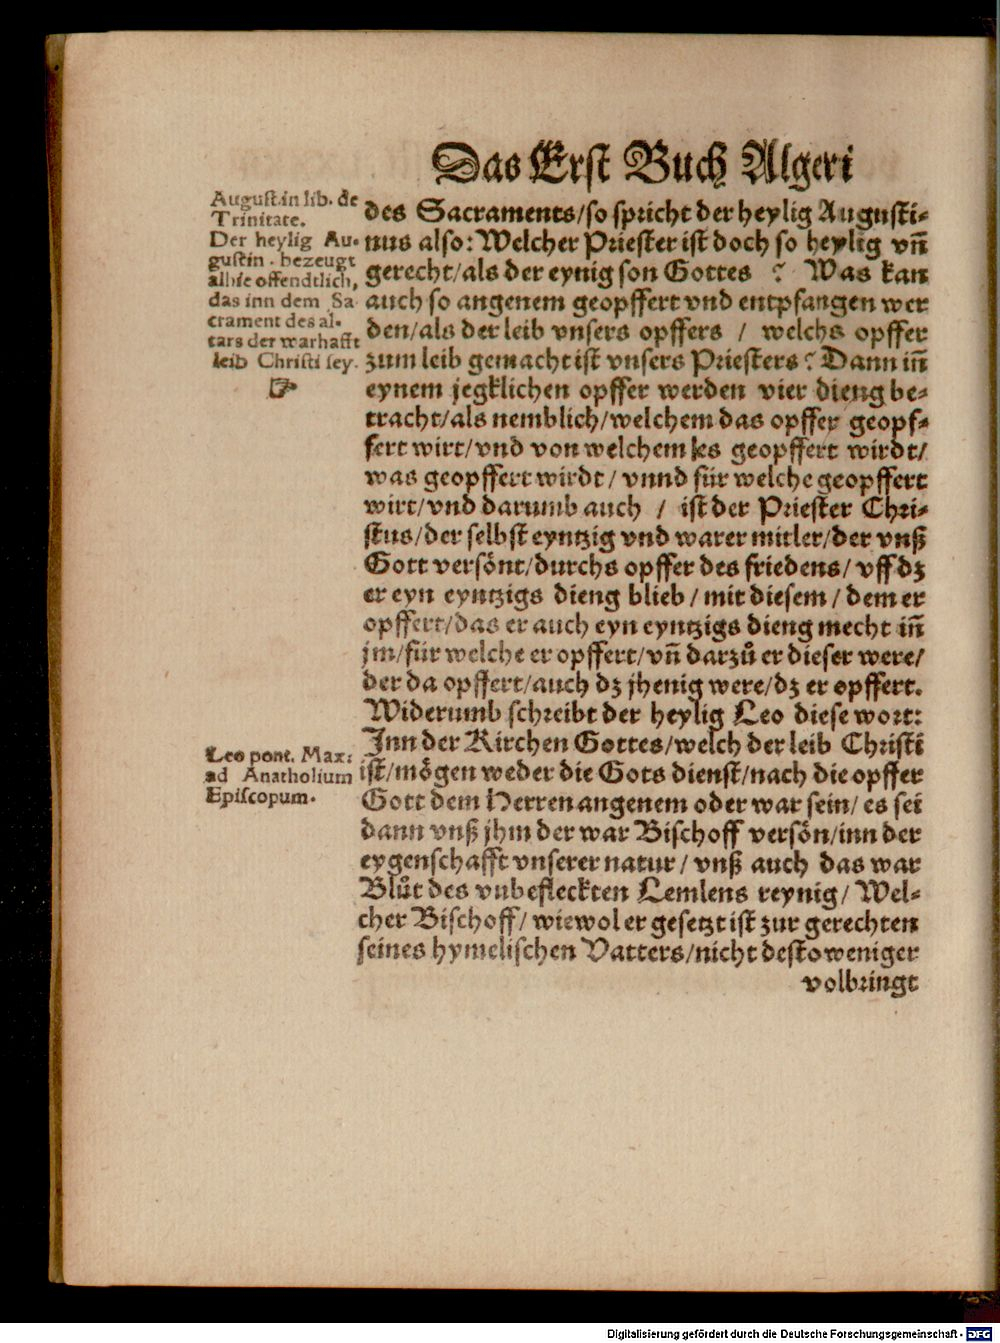 Das Erst Buch Algeri
August. in lib. de
Trinitate.
Der heylig Au-
gustin . bezeugt
alhie offendtlich,
das inn dem Sa
crament des al-
tars der warhafft
leib Christi sey.
☞
des Sacraments/so spricht der heylig Augusti-
nus also: Welcher Priester ist doch so heylig vñ
gerecht/als der eynig son Gottes ? Was kan
auch so angenem geopffert vnd entpfangen wer
den/als der leib vnsers opffers / welchs opffer
zum leib gemacht ist vnsers Priesters? Dann iñ
eynem jegklichen opffer werden vier dieng be-
tracht/als nemblich/welchem das opffer geopf-
fert wirt/vnd von welchem es geopffert wirdt/
was geopffert wirdt / vnnd für welche geopffert
wirt/vnd darumb auch / ist der Priester Chri-
stus/der selbst eyntzig vnd warer mitler/der vnß
Gott versönt/durchs opffer des friedens/ vff dz
er eyn eyntzigs dieng blieb / mit diesem / dem er
opffert/das er auch eyn eyntzigs dieng mecht iñ
jm/für welche er opffert/vñ darzů er dieser were/
der da opffert/auch dz jhenig were/dz er opffert.
Widerumb schreibt der heylig Leo diese wort:
Leo pont. Max:
ad Anatholium
Episcopum.
Inn der Kirchen Gottes/welch der leib Christi
ist/mögen weder die Gots dienst/nach die opffer
Gott dem Herren angenem oder war sein/ es sei
dann vnß jhm der war Bischoff versön/inn der
eygenschafft vnserer natur / vnß auch das war
Blůt des vnbefleckten Lemlens reynig/ Wel-
cher Bischoff/ wiewol er gesetzt ist zur gerechten
seines hymelischen Vatters/nicht desto weniger
volbringt
Digitalisierung gefördert durch die Deutsche Forschungsgemeinschaft - DFG